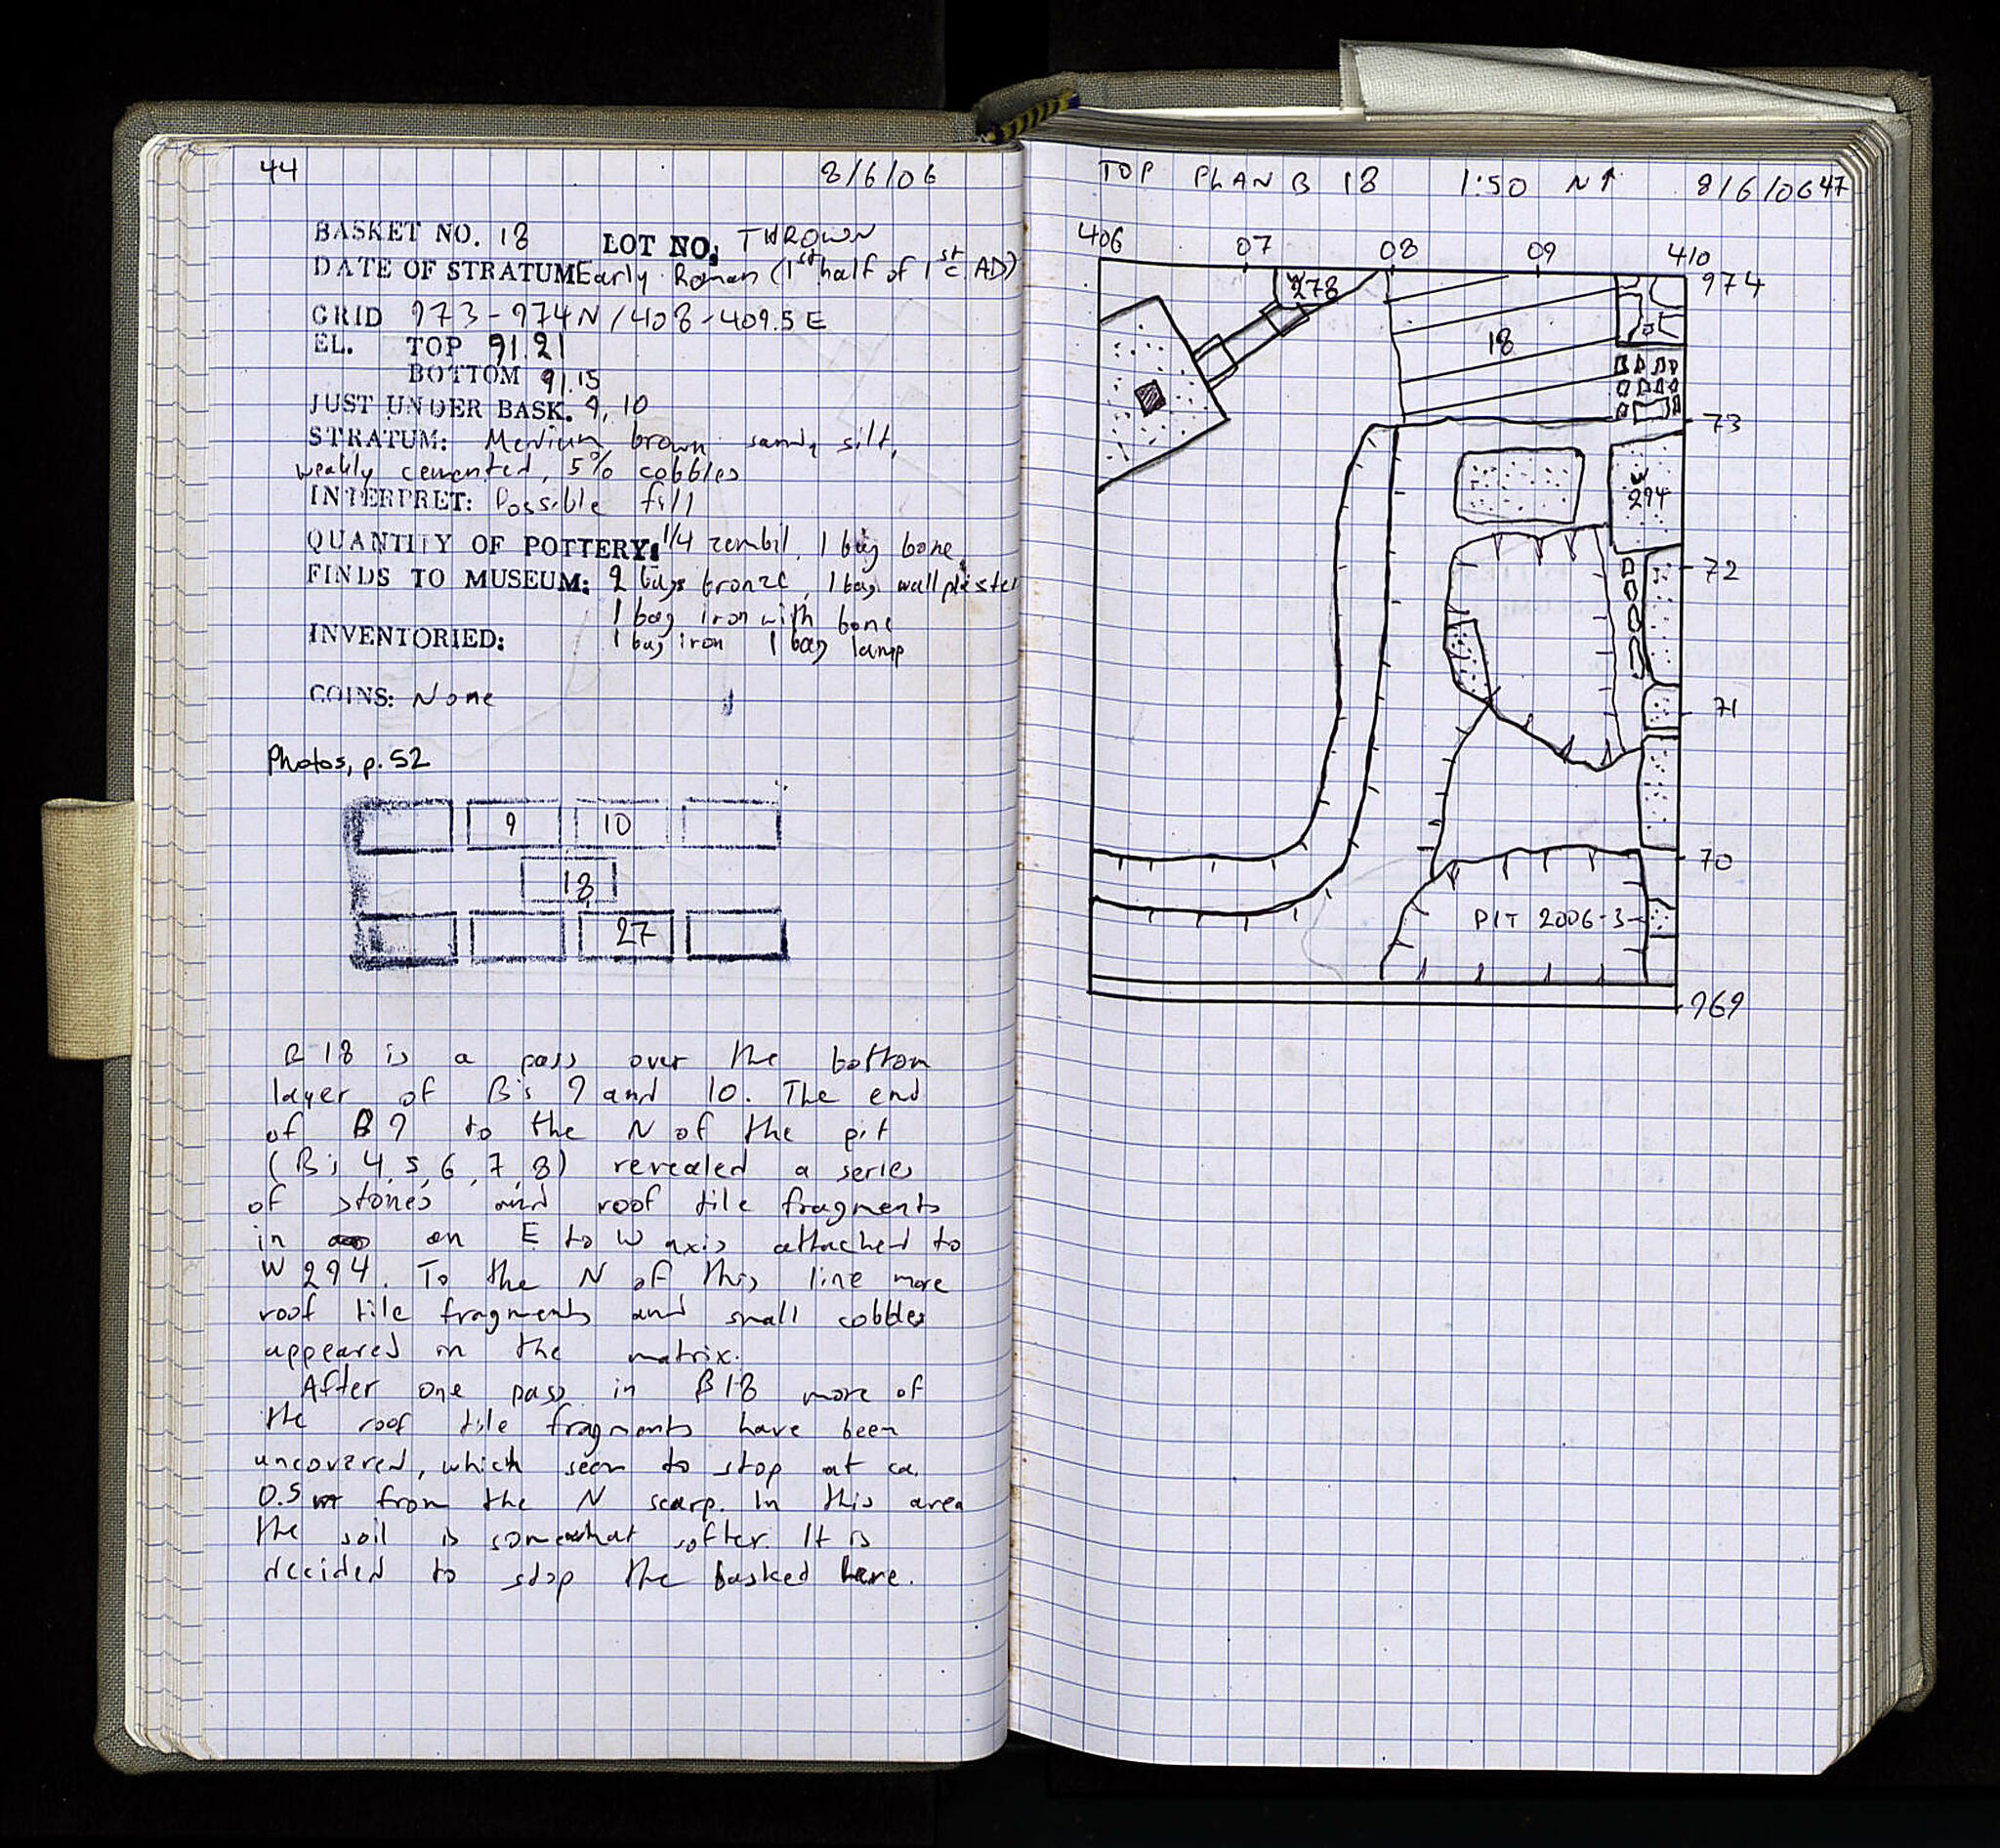 44 8/6/06
BASKET NO. 18 LOT NO: THROWN
DATE OF STRATUM Early Roman (1st half of 1st c AD)
GRID 973-974N/408-409.5E
EL. TOP 91.21
BOTTOM 91.15
JUST UNDER BASK. 9, 10
STRATUM: Medium brown sandy silt,
weakly cemented, 5% cobbles
INTERPRET: Possible fill
QUANTITY OF POTTERY: 1/4 zembil, 1 bag bone,
FINDS TO MUSEUM: 2 bags bronze, 1 bag wall plaster
1 bag iron with bone
INVENTORIED: 1 bag iron 1 bag lamp
COINS: None
Photos, p. 52
9 10
18
27
B 18 is a pass over the bottom
layer of B's 9 and 10. The end
of B9 to the N of the pit
(B's 4, 5, 6, 7, 8) revealed a series
of stones and roof tile fragments
in an E to W axis attached to
W 294. To the N of this line more
roof tile fragments and small cobbles
appeared in the matrix.
After one pass in B18 more of
the roof tile fragments have been
uncovered, which seem to stop at ca.
0.5 m from the N scarp. In this area
the soil is somewhat softer. It is
decided to stop the basked here.
TOP PLAN B 18 1:50 N↑ 8/6/06 47
406 07 08 09 410
974
278
18
73
W
294
72
71
70
PIT 2006-3
969